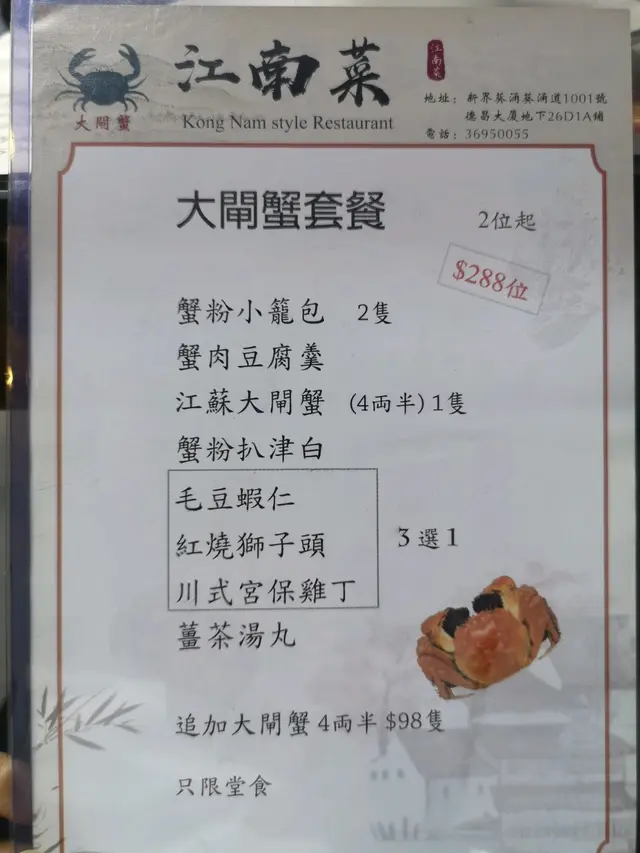 大閘蟹
江南菜
Kong Nam style Restaurant
江南菜
地址：新界葵涌葵涌道1001號
德昌大廈地下26D1A鋪
電話：36950055
大閘蟹套餐 2位起
$288位
蟹粉小籠包 2隻
蟹肉豆腐羹
江蘇大閘蟹 (4両半)1隻
蟹粉扒津白
毛豆蝦仁
紅燒獅子頭 3選1
川式宮保雞丁
薑茶湯丸
追加大閘蟹4両半$98隻
只限堂食